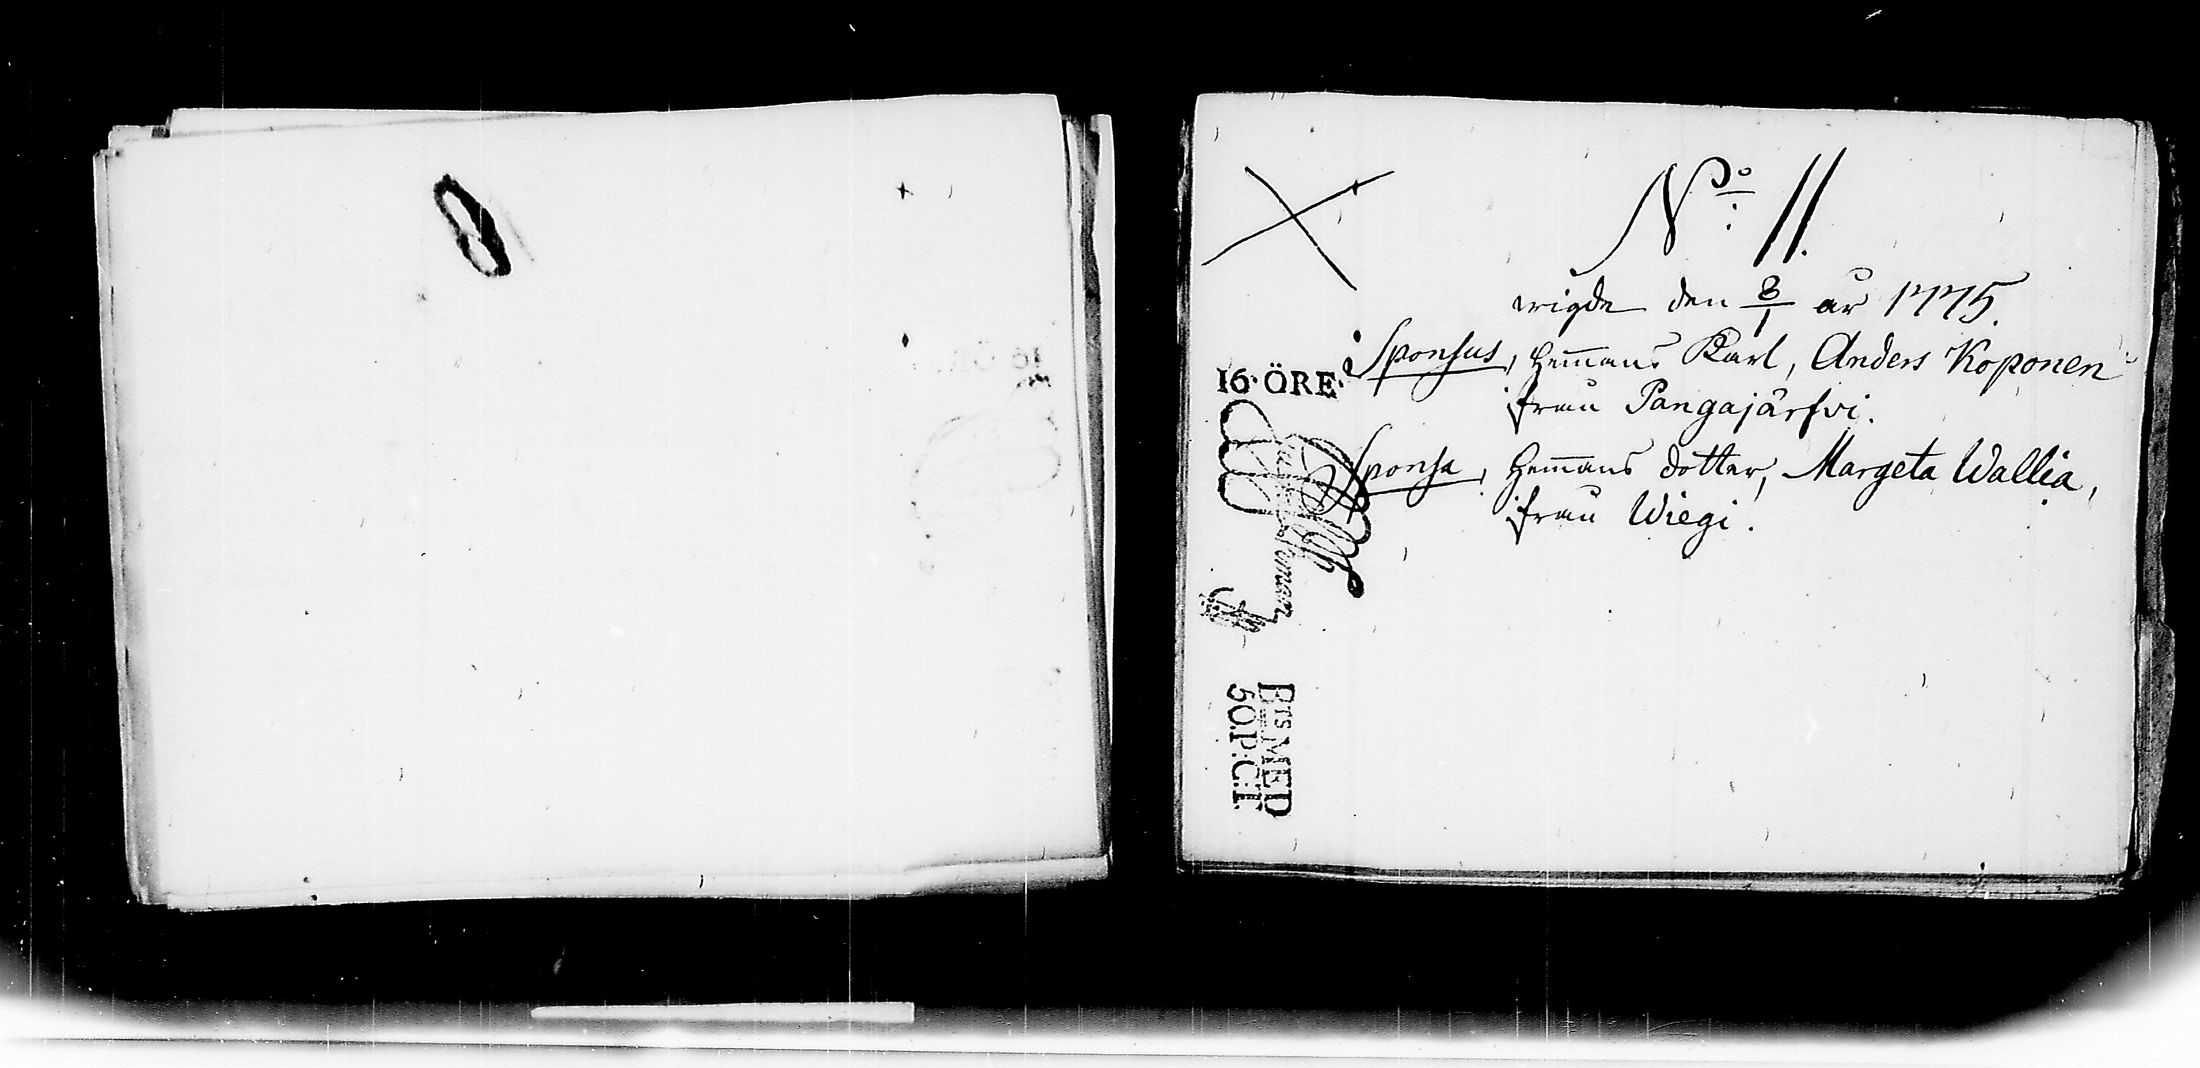 No: 11.
wigde den 8/1 år 1775.
Sponsus, Hem̄ans Karl, Anders Koponen
från Pangajärfvi.
16·ÖRE·
Sponsa, Hem̄ans dotter, Margeta Wallia,
från Wiegi.
BTS MED
50.P:C:T.